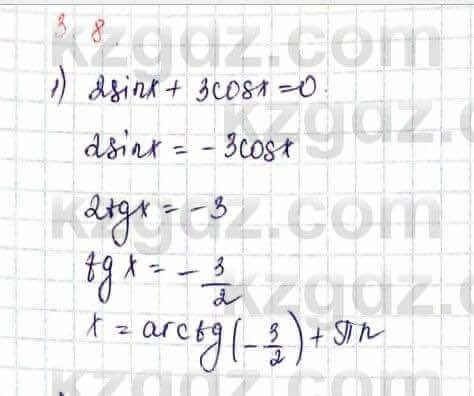 3.8.
1) 2sinx + 3cosx = 0.
2sinx = -3cosx
2tgx = -3
tg x = - 3/2
x = arctg(- 3/2) + πn
kzgdz.com
kzgdz.com
kzgdz.com
kzgdz.com
kzgdz.com